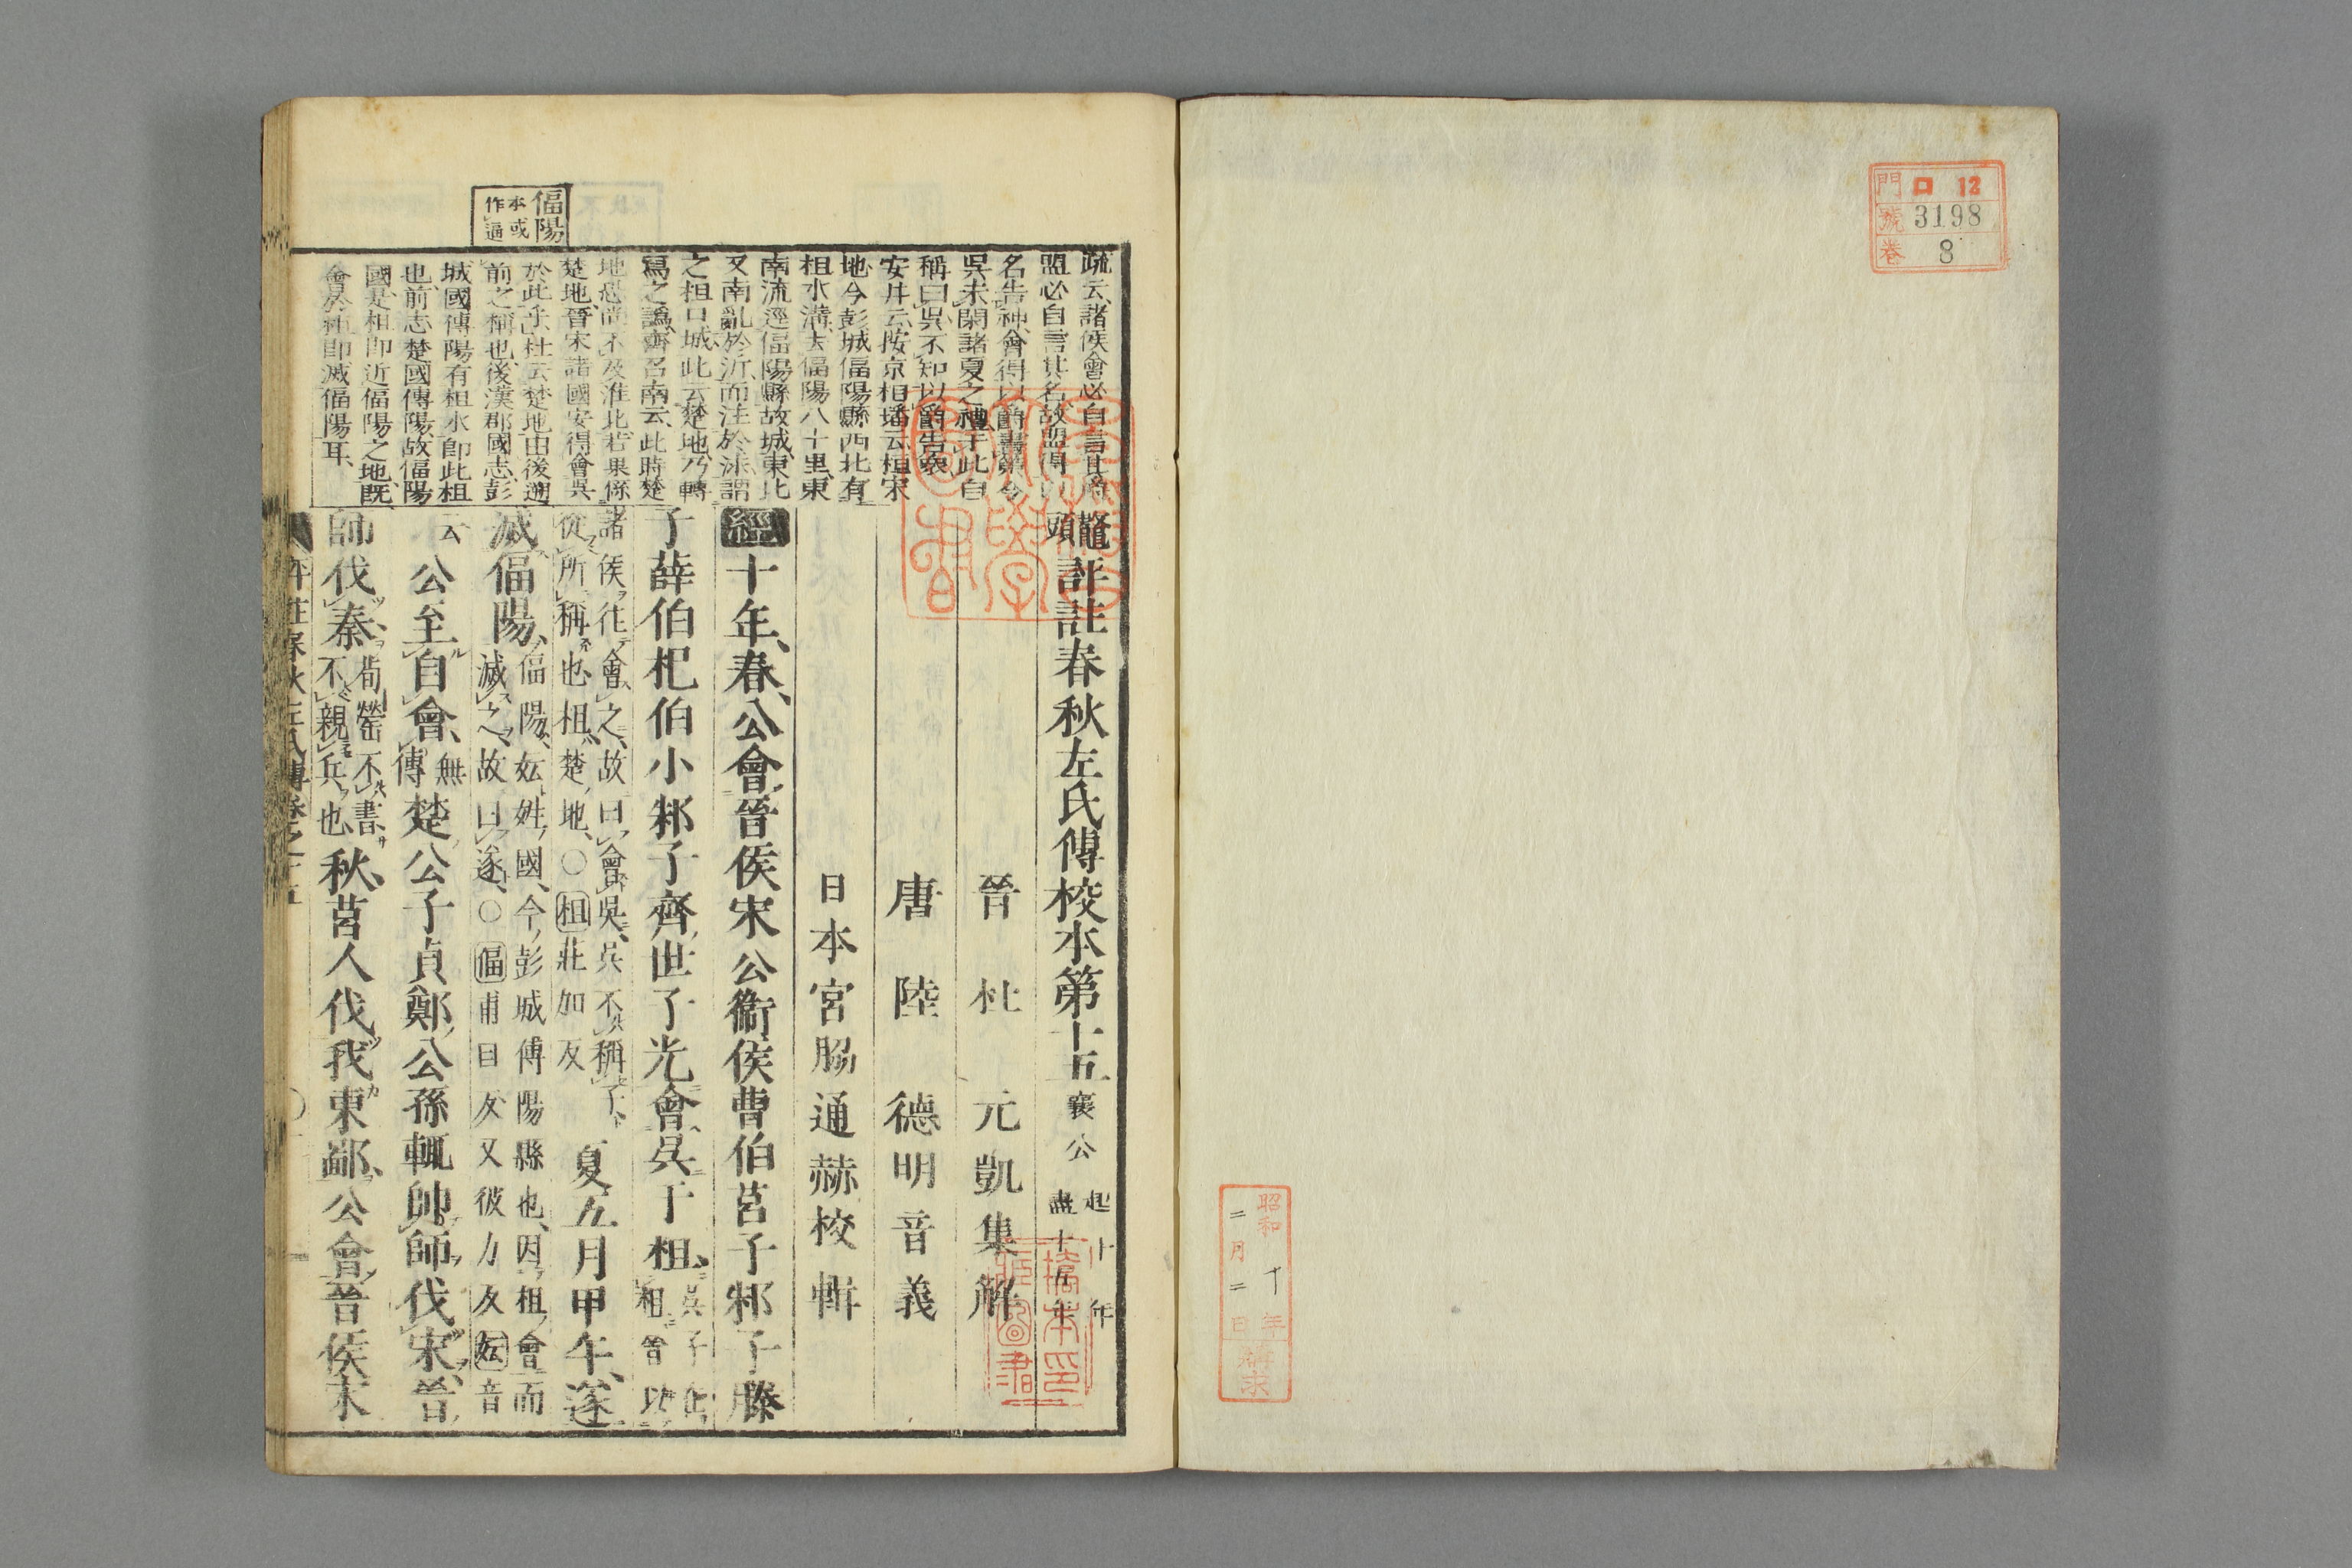 門 ロ 12
號 3198
卷 8
昭和十年
二月二日
購求
偪陽
本或
作逼
疏云諸侯會必自言其爵
盟必自言其名故盟得以
名告神會得以爵書策今
吳未閑諸夏之禮于此自
稱曰吳不知以爵告衆
安井云按京相璠云柤宋
地今彭城偪陽縣西北有
柤水溝去偪陽八十里東
南流逕偪陽縣故城東北
又南亂於沂而注於沭謂
之柤口城此云楚地乃轉
寫之譌齊召南云此時楚
地恐尚不及淮北若果係
楚地晉宋諸國安得會吳
於此乎杜云楚地由後遡
前之稱也後漢郡國志彭
城國傅陽有柤水即此柤
也前志楚國傅陽故偪陽
國是柤即近偪陽之地既
會於柤即滅偪陽耳
鼇頭評註春秋左氏傳校本第十五 襄公 起十年 盡十五年
晉 杜 元凱集解
唐 陸 德明音義
日本宮脇通赫校輯
經十年、春、公會晉侯宋公衞侯曹伯莒子邾子滕
子薛伯杞伯小邾子齊世子光會吳于柤、吳子在柤晉以
諸侯往會之、故曰會吳、吳不稱子、從所稱也、柤、楚地、○柤莊加反 夏五月甲午、遂
滅偪陽、偪陽、妘姓國、今彭城傅陽縣也、因柤會而滅之、故曰遂、○偪甫目反又彼力反妘音云
公至自會、無傳 楚公子貞鄭公孫輒帥師伐宋、晉
師伐秦、荀罃不書、不親兵也、 秋、莒人伐我東鄙、公會晉侯宋
評註春秋左氏傳卷之十五
橋本印